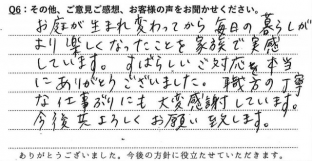 Q6：その他、ご意見ご感想、お客様の声をお聞かせください。
お庭が生まれ変わってから毎日の暮らしが
より楽しくなったことを家族で実感
しています。すばらしいご対応を本当
にありがとうございました。職方の丁寧
な仕事ぶりにも大変感謝しています。
今後共よろしくお願い致します。
ありがとうございました。今後の方針に役立たせていただきます。